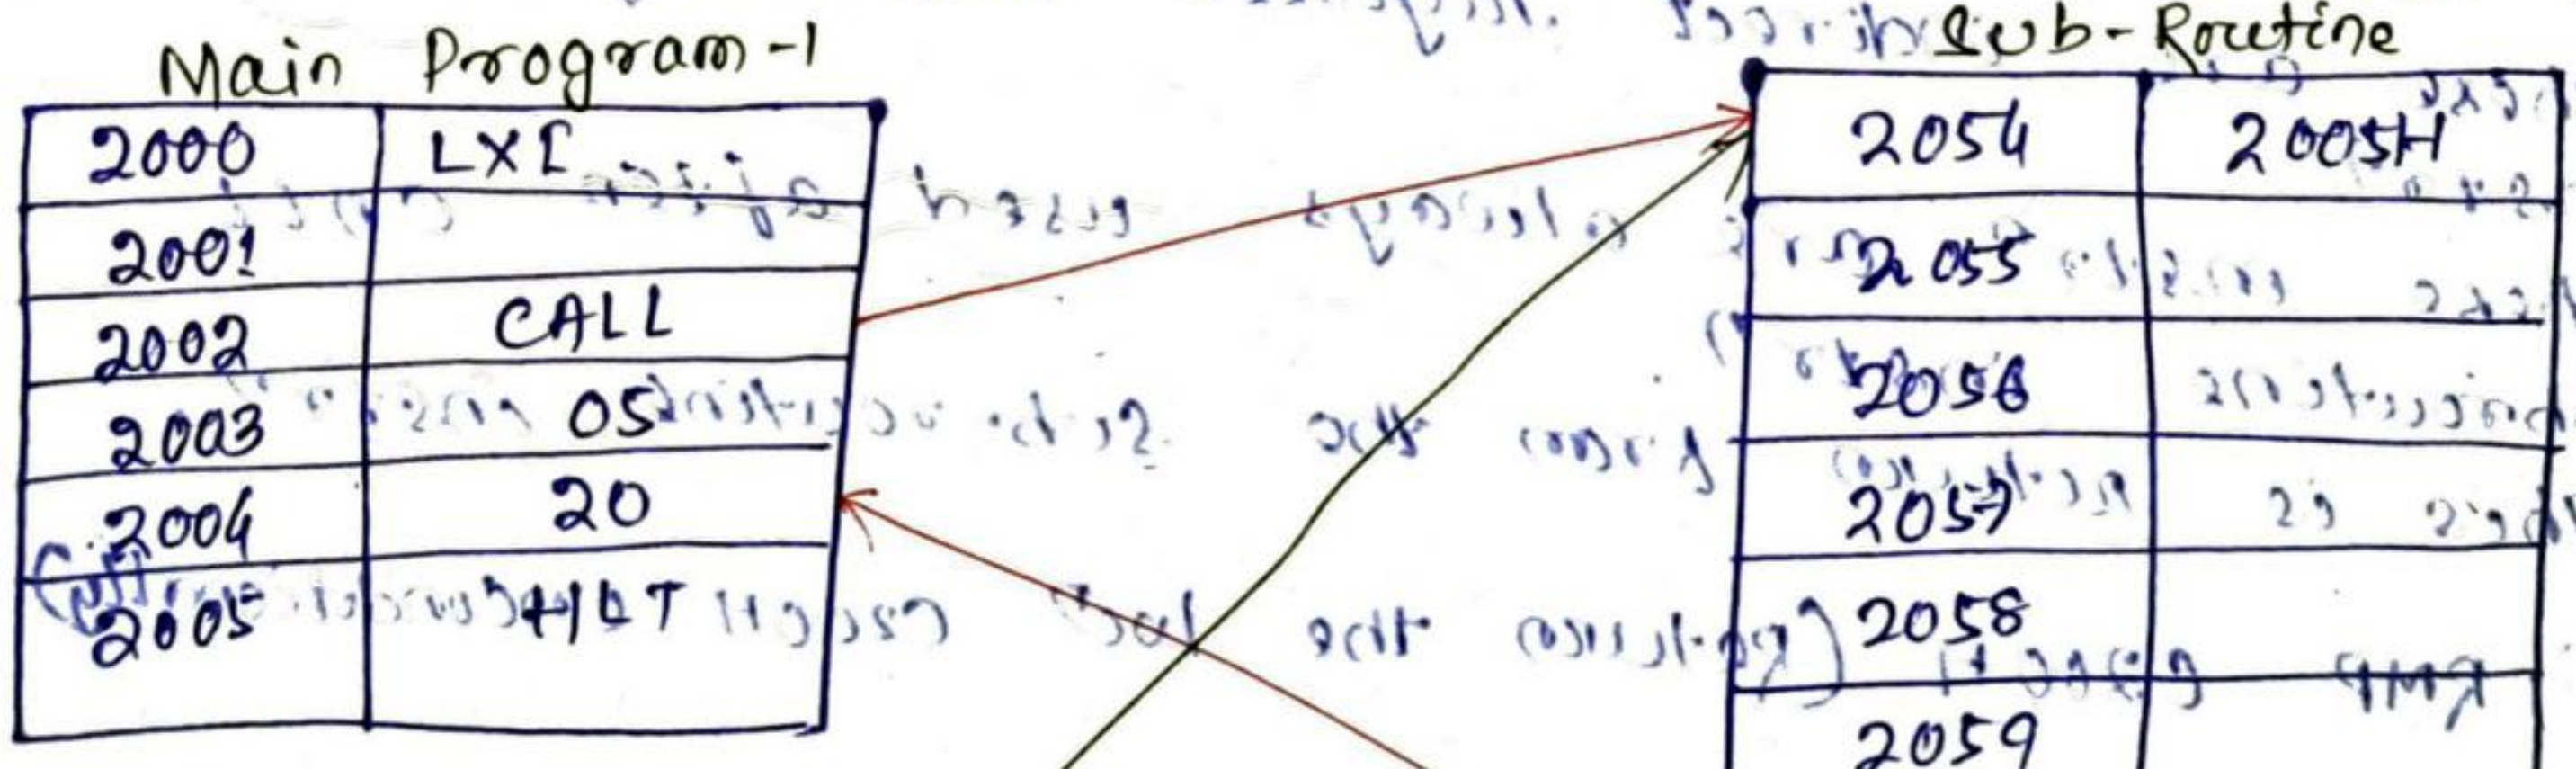 Main Program-1
2000 LXI
2001
2002 CALL
2003 05
2004 20
2005 HLT
Sub-Routine
2054 2005H
2055
2056
2057
2058
2059